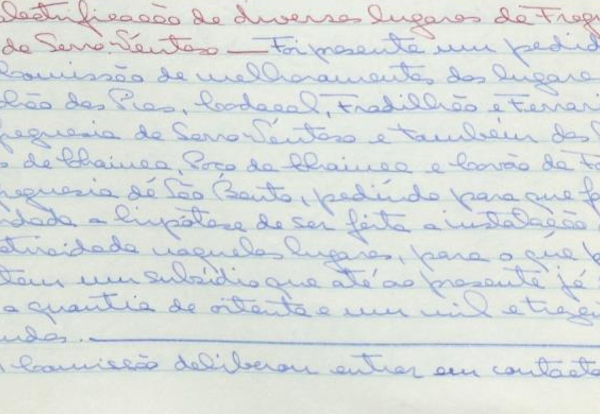 lectrificação de diversos lugares da Freg
de Serro-Ventoso — Foi presente um pedid
Comissão de melhoramentos dos lugare
das Pias, Codaçal, Fradilhão e Ferrari
reguesia de Serro-Ventoso e também dos
de Chainça, Poço da Chainça e Covão da
reguesia de São Bento, pedindo para que
ndada a hipótese de ser feita a instalação
etricidade naqueles lugares, para o que
tem um subsídio que até ao presente já
a quantia de oitenta e um mil e trezen
udos.
Comissão deliberou entrar em contacto